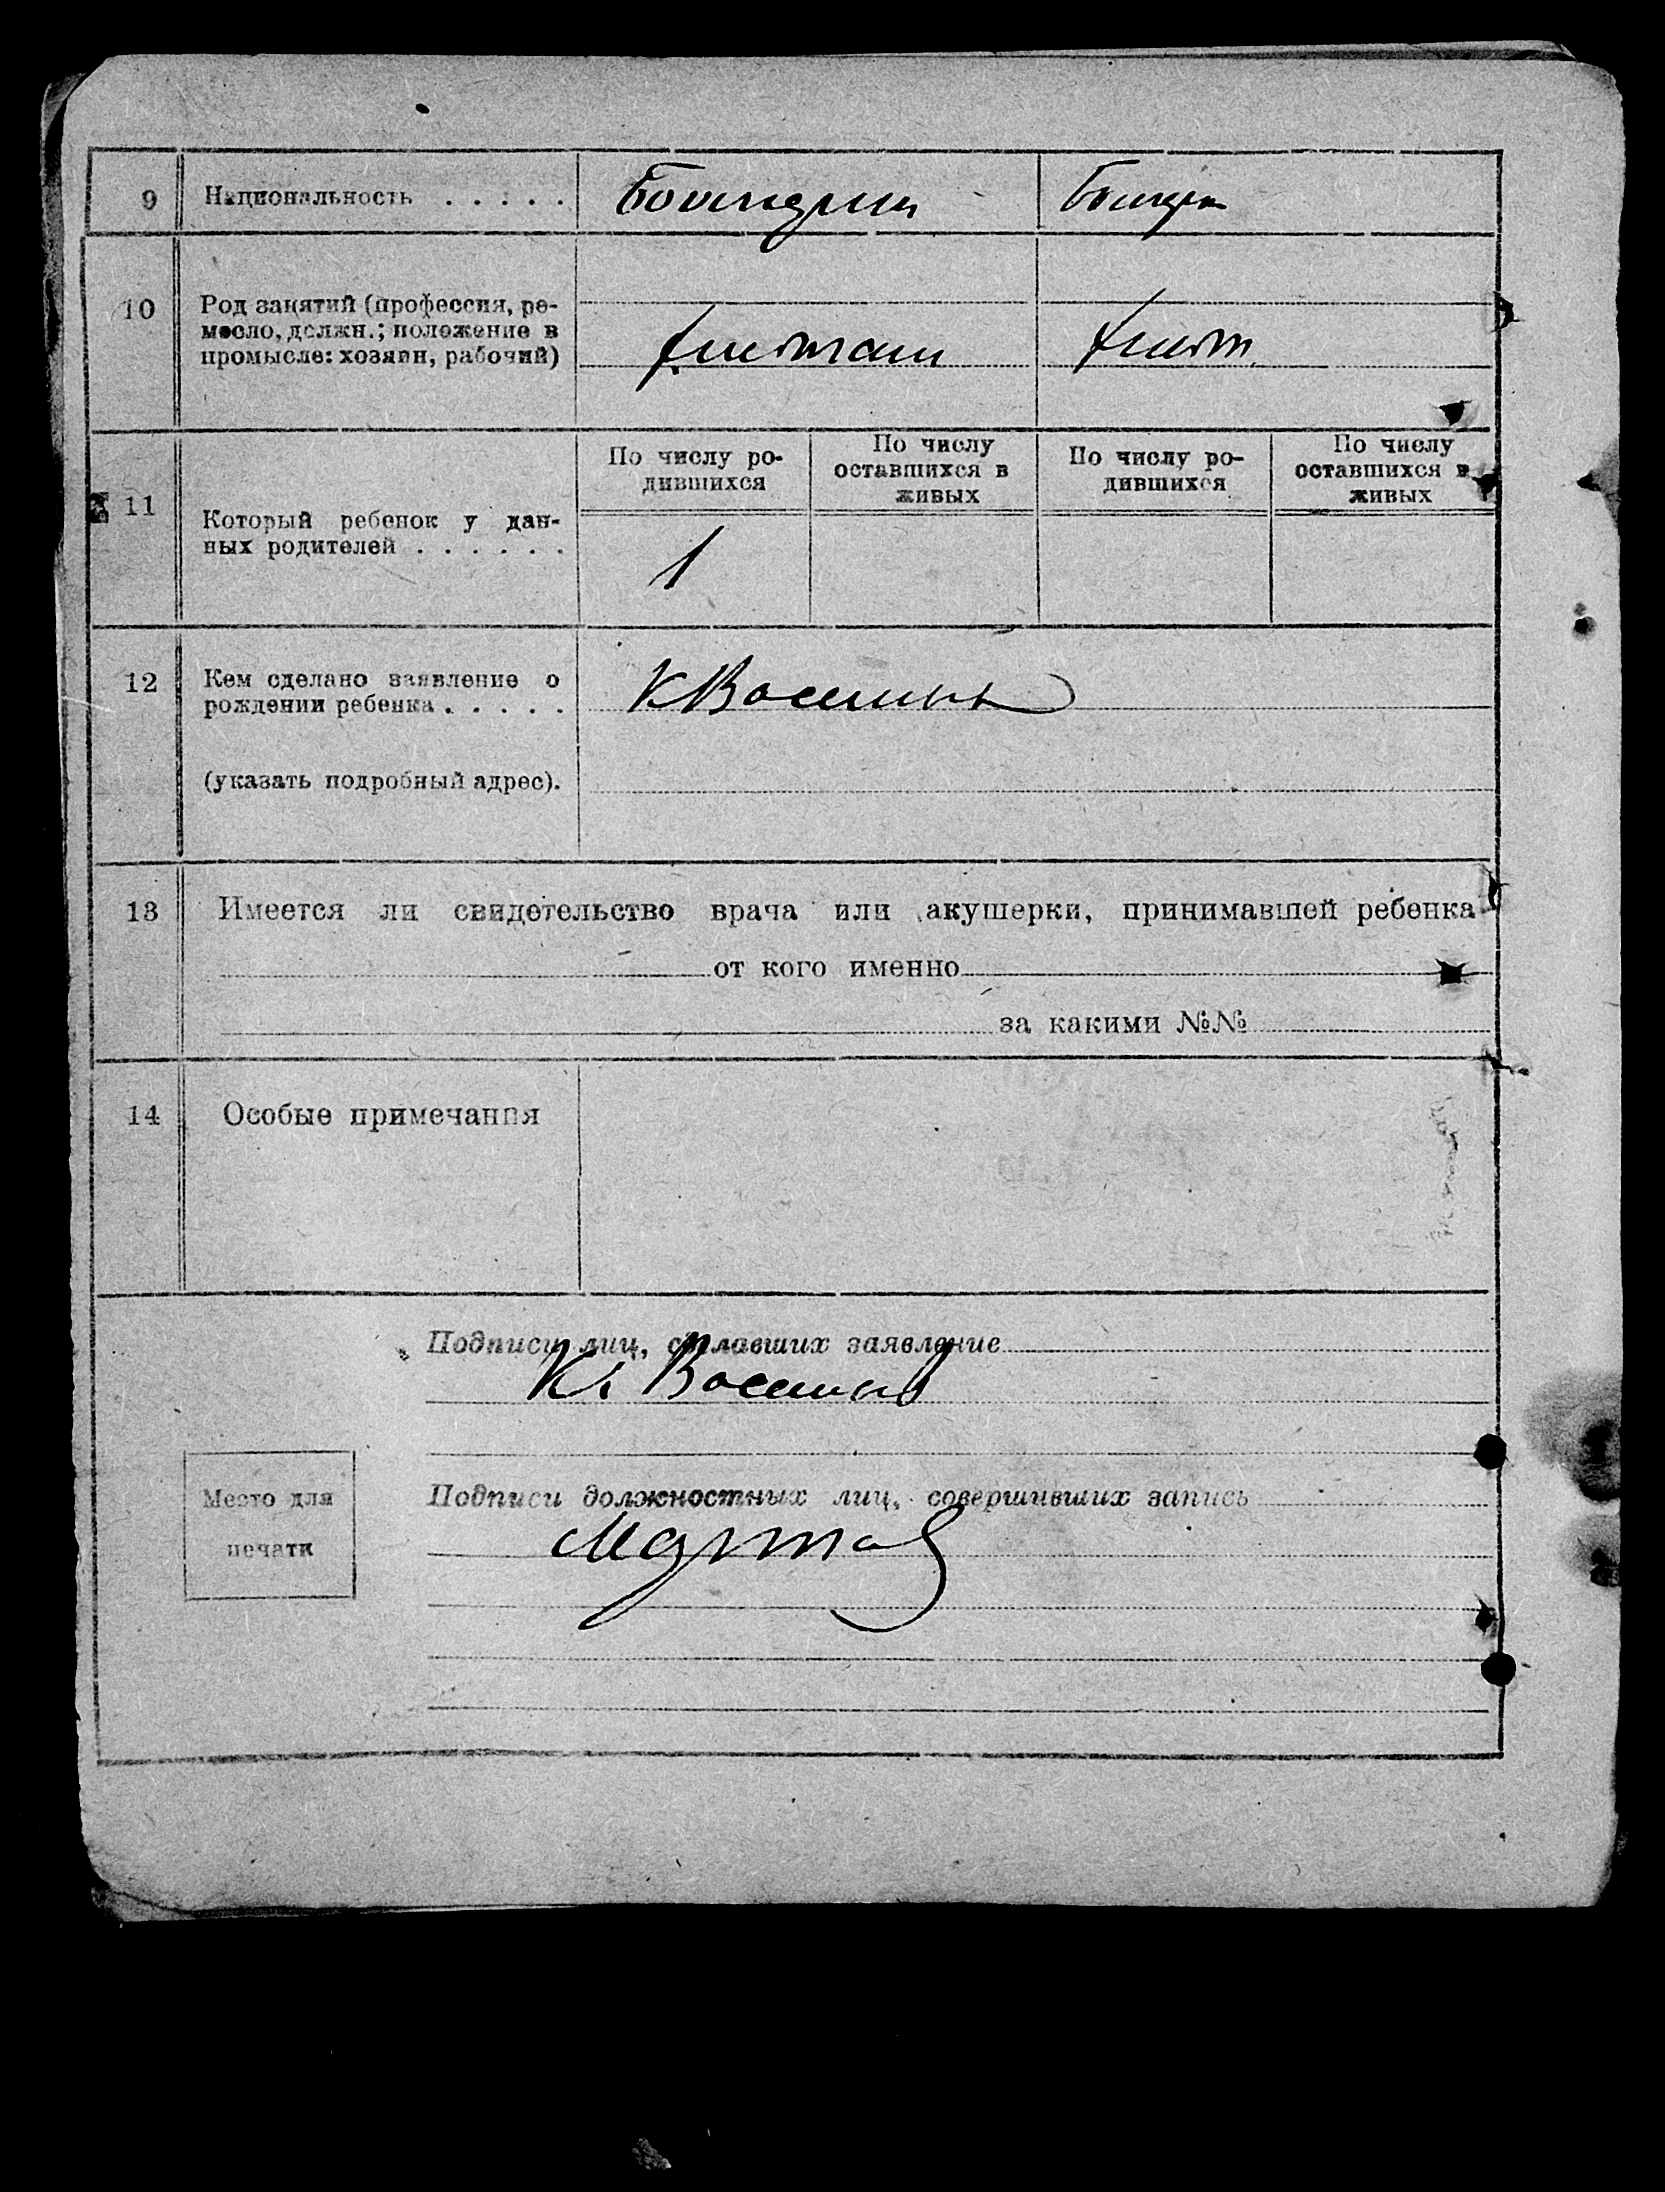 9 Национальность . . . . . Башкурин Башкур
10 Род занятий (профессия, ре-
месло, должн.; положение в
промысле: хозяин, рабочий)
11 Который ребенок у дан-
ных родителей . . . . . .
По числу ро-
дившихся
По числу
оставшихся в
живых
По числу ро-
дившихся
По числу
оставшихся в
живых
1
12 Кем сделано заявление о
рождении ребенка . . . . .
(указать подробный адрес).
13 Имеется ли свидетельство врача или акушерки, принимавшей ребенка
от кого именно
за какими №№
14 Особые примечания
Подписи лиц, сделавших заявление
Место для
печати
Подписи должностных лиц, совершивших запись